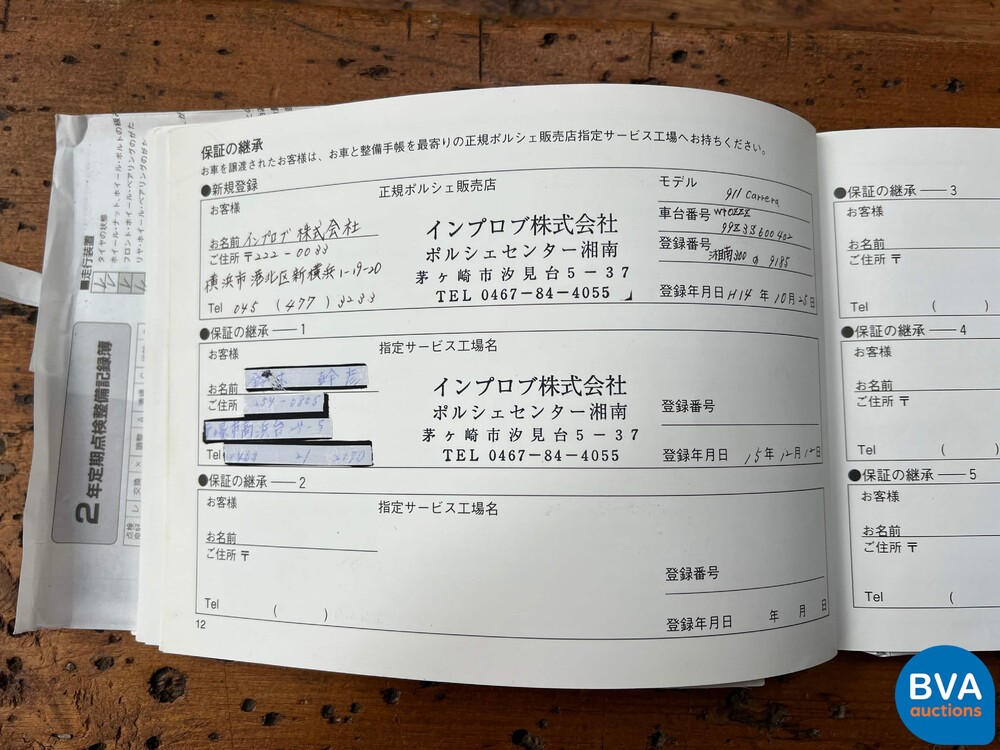 保証の継承
お車を譲渡されたお客様は、お車と整備手帳を最寄りの正規ポルシェ販売店指定サービス工場へお持ちください。
●新規登録
お客様
お名前 インプロブ 株式会社
ご住所 〒222-0033
横浜市港北区新横浜1-19-20
Tel 045 (477) 3233
正規ポルシェ販売店
インプロブ株式会社
ポルシェセンター湘南
茅ヶ崎市汐見台5-37
TEL 0467-84-4055
モデル 911 Carrera
車台番号 WP0ZZZ
99Z3S600402
登録番号 湘南300 9185
登録年月日 H14年10月25日
●保証の継承——1
お客様
お名前
ご住所
Tel
指定サービス工場名
インプロブ株式会社
ポルシェセンター湘南
茅ヶ崎市汐見台5-37
TEL 0467-84-4055
登録番号
登録年月日 15年12月12日
●保証の継承——2
お客様
お名前
ご住所 〒
Tel ( )
指定サービス工場名
登録番号
登録年月日 年 月 日
12
●保証の継承——3
お客様
お名前
ご住所 〒
Tel (
●保証の継承——4
お客様
お名前
ご住所 〒
Tel (
●保証の継承——5
お客様
お名前
ご住所 〒
Tel (
■走行装置
タイヤの状態
ホイール・ナット、ホイール・ボルトの緩み
フロント・ホイール・ベアリングのがた
リヤ・ホイール・ベアリングのがた
2年定期点検整備記録簿
BVA
auctions